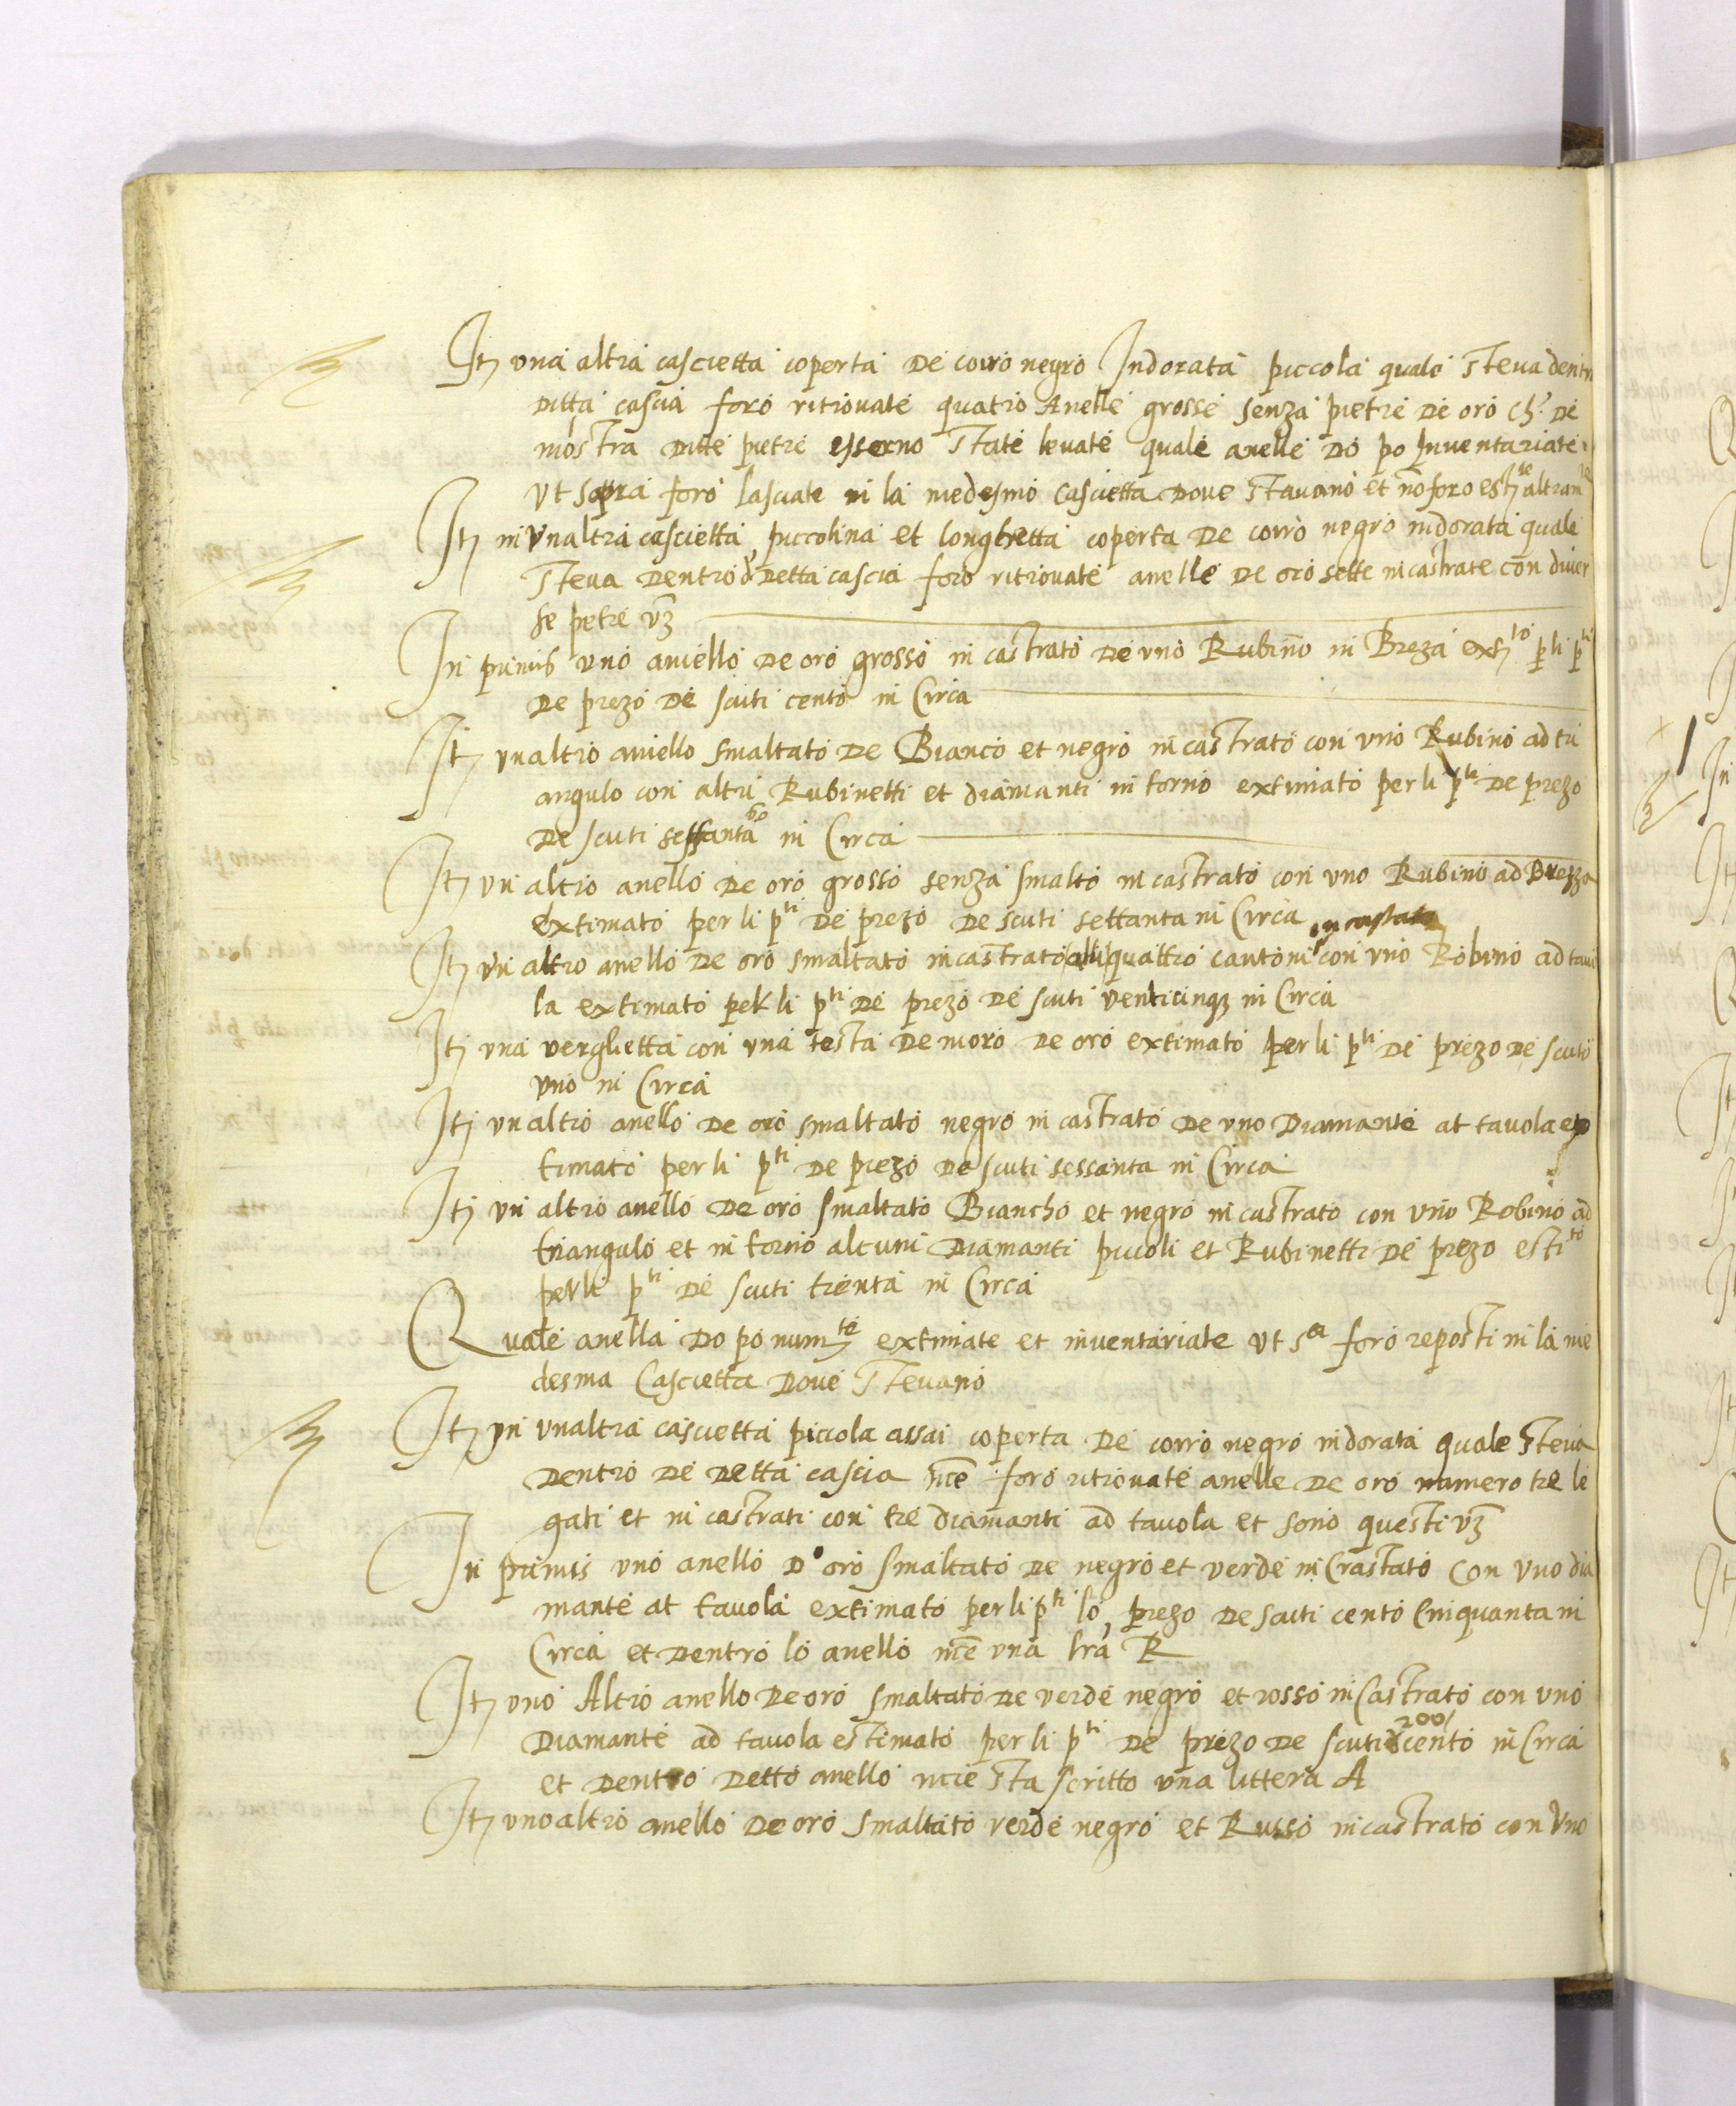 It̃ una altra cascietta coperta de corio negro Indorata piccola quale steva dentro
ditta cascia foro ritrovate quatro Anelle grosse senza pietre de oro ch. de
mostra ditte pietre esserno state levate quale anelle do po Inventariate
ut sopra foro lasciate in la medesmo cascietta dove stavano et nõ foro altram
It̃ in unaltra cascietta piccolina et longhetta coperta de corrò negro indorata quale
steva dentro detta cascia foro ritrovate anelle de oro sette incastrate con diver
se petre vz
In primis uno aniello de oro grosso in castrato de uno Rubino in Breza exto per li pti
de prezo de scuti cento in Circa
It̃ unaltro aniello smaltato de Bianco et negro in castrato con uno Rubino ad tri
angulo con altri Rubinetti et diamanti in torno extimato per li pti de prezo
de scuti sessanta 60 in Circa
It̃ un altro anello de oro grosso senza smalto in castrato con uno Rubino ad Brezza
extimato per li pti de prezo de scuti settanta in Circa
It̃ un altro anello de oro smaltato incastrato alli quattro cantoni incastato con uno Robino ad tavu
la extimato per li pti de prezo de scuti venticinq; in Circa
It̃ una verghetta con una testa de moro de oro extimato per li pti de prezo de scuto
uno in Circa
It̃ unaltro anello de oro smaltato negro in castrato de uno Diamante at tavola ex
timato per li pti de prezo de scuti sessanta in Circa
It̃ un altro anello de oro smaltato Biancho et negro in castrato con uno Robino ad
triangulo et in torno alcuni Diamanti piccoli et Rubinetti de prezo estito
per li pti de scuti trenta in Circa
Quale anella do po extimate et inventariate ut sa foro reposti in la me
desma Cascietta dove stevano
It̃ in unaltra cascietta piccola assai coperta de corrò negro indorata quale steva
dentro de detta cascia nce foro ritrovate anelle de oro numero tre le
gati et in castrati con tre diamanti ad tavola et sono questi vz
In primis uno anello d'oro smaltato de negro et verde in Crastato con uno dia
mante at tavola extimato per li pti lo prezo de scuti cento Cinquanta in
Circa et dentro lo anello nce una lra R
It̃ uno Altro anello de oro smaltato de verde negro et rosso in Castrato con uno
Diamante ad tavola estimato per li pti de prezo de scuti 200 cento in Circa
et dentro detto anello ncie sta scritto una littera A
It̃ uno altro anello de oro smaltato verde negro et Russo incastrato con uno